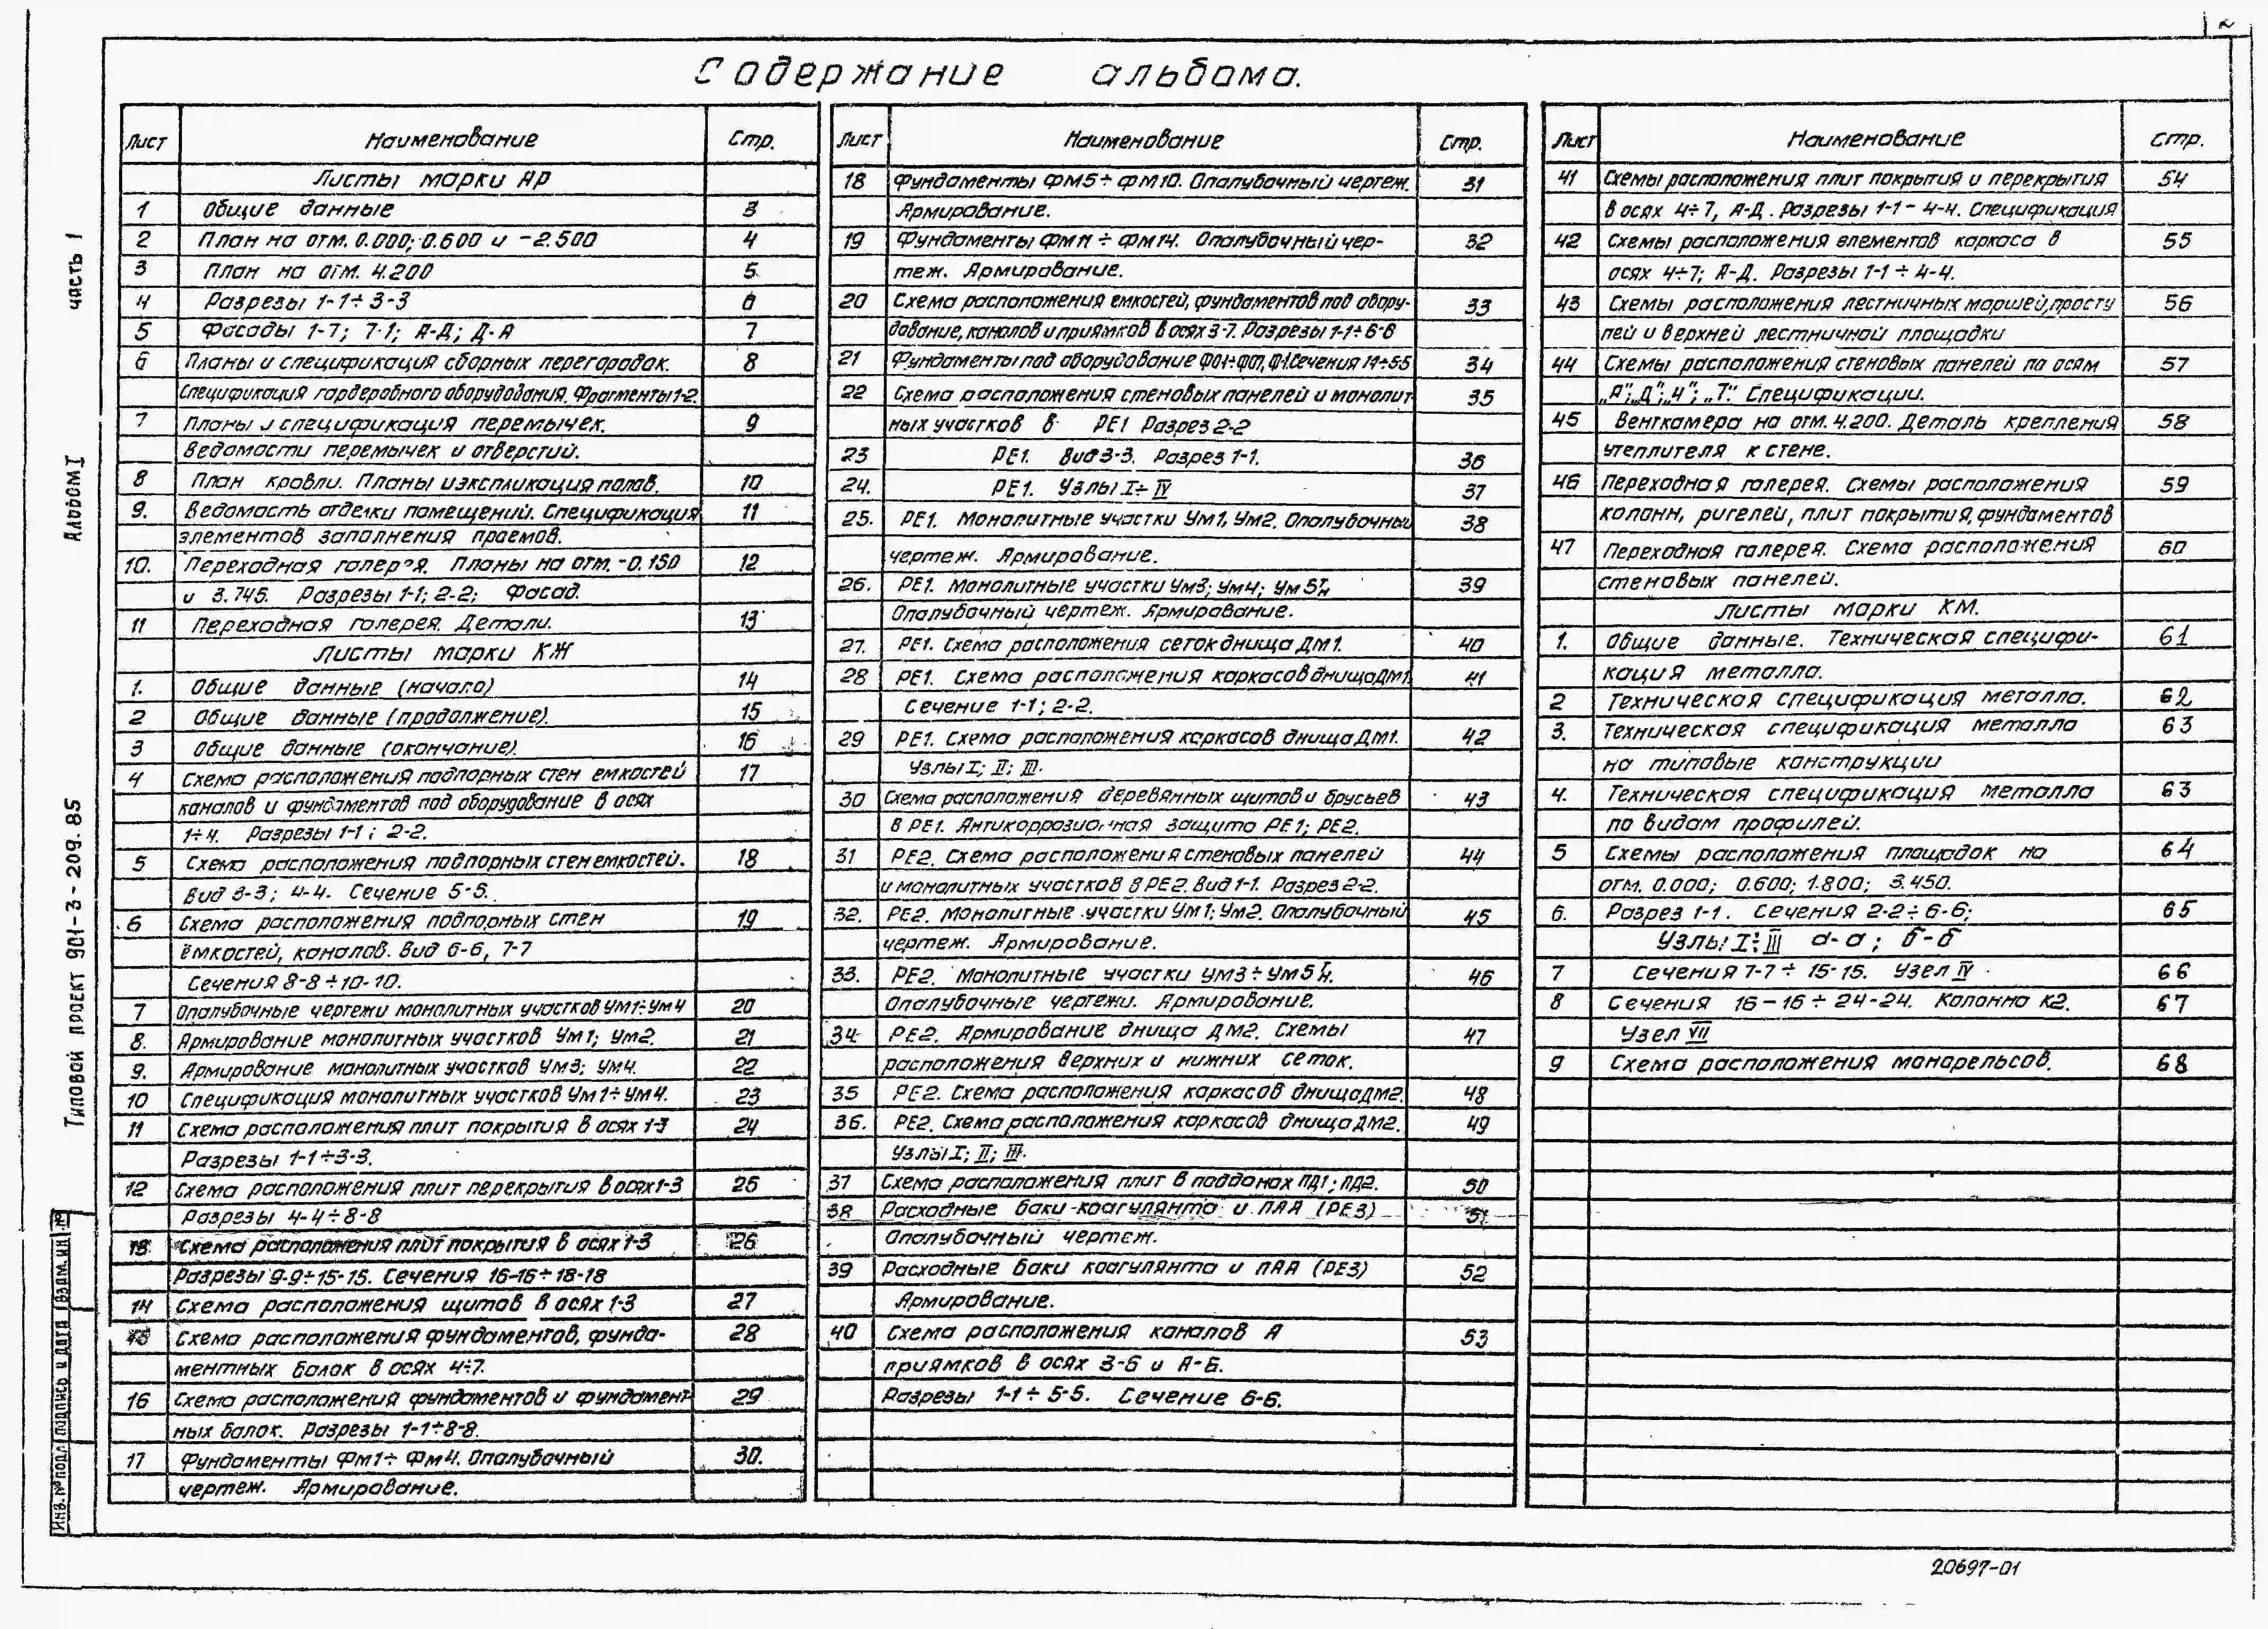 2
Содержание альбома.
Лист Наименование Стр.
Листы марки АР
1 Общие данные 3
2 План на отм. 0.000; 0.600 и -2.500 4
3 План на отм. 4.200 5
4 Разрезы 1-1÷3-3 6
5 Фасады 1-7; 7-1; А-Д; Д-А 7
6 Планы и спецификация сборных перегородок. 8
Спецификация гардеробного оборудования. Фрагменты 1-2.
7 Планы и спецификация перемычек. 9
Ведомости перемычек и отверстий.
8 План кровли. Планы и экспликация полов. 10
9. Ведомость отделки помещений. Спецификация 11
элементов заполнения проемов.
10. Переходная галерея. Планы на отм. -0.150 12
и 3.745. Разрезы 1-1; 2-2; Фасад.
11 Переходная галерея. Детали. 13
Листы марки КЖ
1. Общие данные (начало) 14
2 Общие данные (продолжение). 15
3 Общие данные (окончание). 16
4 Схема расположения подпорных стен емкостей 17
каналов и фундаментов под оборудование в осях
1÷4. Разрезы 1-1; 2-2.
5 Схема расположения подпорных стен емкостей. 18
Вид 3-3; 4-4. Сечение 5-5.
6 Схема расположения подпорных стен 19
ёмкостей, каналов. Вид 6-6, 7-7
Сечения 8-8÷10-10.
7 Опалубочные чертежи монолитных участков Ум1÷Ум4 20
8. Армирование монолитных участков Ум1; Ум2. 21
9. Армирование монолитных участков Ум3; Ум4. 22
10 Спецификация монолитных участков Ум1÷Ум4. 23
11 Схема расположения плит покрытия в осях 1-3 24
Разрезы 1-1÷3-3.
12 Схема расположения плит перекрытия в осях 1-3 25
Разрезы 4-4÷8-8
13 Схема расположения плит покрытия в осях 1-3 26
Разрезы 9-9÷15-15. Сечения 16-16÷18-18
14 Схема расположения щитов в осях 1-3 27
15 Схема расположения фундаментов, фунда- 28
ментных балок в осях 4÷7.
16 Схема расположения фундаментов и фундамент 29
ных балок. Разрезы 1-1÷8-8.
17 Фундаменты Фм1÷Фм4. Опалубочный 30.
чертеж. Армирование.
Лист Наименование Стр.
18 Фундаменты Фм5÷Фм10. Опалубочный чертеж. 31
Армирование.
19 Фундаменты Фм11÷Фм14. Опалубочный чер- 32
теж. Армирование.
20 Схема расположения емкостей, фундаментов под обору- 33
дование, каналов и приямков в осях 3-7. Разрезы 1-1÷6-6
21 Фундаменты под оборудование ФО1÷ФО7, Ф1. Сечения 1-1÷5-5 34
22 Схема расположения стеновых панелей и монолит 35
ных участков в РЕ1 Разрез 2-2
23 РЕ1. Вид 3-3. Разрез 1-1. 36
24. РЕ1. Узлы I÷IV 37
25. РЕ1. Монолитные участки Ум1, Ум2. Опалубочный 38
чертеж. Армирование.
26. РЕ1. Монолитные участки Ум3; Ум4; Ум5т,н 39
Опалубочный чертеж. Армирование.
27. РЕ1. Схема расположения сеток днища Дм1. 40
28 РЕ1. Схема расположения каркасов днища Дм1 41
Сечение 1-1; 2-2.
29 РЕ1. Схема расположения каркасов днища Дм1. 42
Узлы I; II; III.
30 Схема расположения деревянных щитов и брусьев 43
в РЕ1. Антикоррозионная защита РЕ1; РЕ2.
31 РЕ2. Схема расположения стеновых панелей 44
и монолитных участков в РЕ2. Вид 1-1. Разрез 2-2.
32. РЕ2. Монолитные участки Ум1; Ум2. Опалубочный 45
чертеж. Армирование.
33. РЕ2. Монолитные участки Ум3÷Ум5т,н. 46
Опалубочные чертежи. Армирование.
34. РЕ2. Армирование днища Дм2. Схемы 47
расположения верхних и нижних сеток.
35 РЕ2. Схема расположения каркасов днища Дм2. 48
36. РЕ2. Схема расположения каркасов днища Дм2. 49
Узлы I; II; III.
37 Схема расположения плит в поддонах ПД1; ПД2. 50
38 Расходные баки коагулянта и ПАА (РЕ3) 51
Опалубочный чертеж.
39 Расходные баки коагулянта и ПАА (РЕ3) 52
Армирование.
40 Схема расположения каналов и 53
приямков в осях 3-6 и А-Б.
Разрезы 1-1÷5-5. Сечение 6-6.
Лист Наименование Стр.
41 Схемы расположения плит покрытия и перекрытия 54
в осях 4÷7, А-Д. Разрезы 1-1 - 4-4. Спецификация
42 Схемы расположения элементов каркаса в 55
осях 4÷7; А-Д. Разрезы 1-1÷4-4.
43 Схемы расположения лестничных маршей, просту 56
пей и верхней лестничной площадки
44 Схемы расположения стеновых панелей по осям 57
„А"; „Д"; „4"; „7". Спецификации.
45 Венткамера на отм. 4.200. Деталь крепления 58
утеплителя к стене.
46 Переходная галерея. Схемы расположения 59
колонн, ригелей, плит покрытия, фундаментов
47 Переходная галерея. Схема расположения 60
стеновых панелей.
Листы марки КМ.
1. Общие данные. Техническая специфи- 61
кация металла.
2 Техническая спецификация металла. 62
3. Техническая спецификация металла 63
на типовые конструкции
4. Техническая спецификация металла 63
по видам профилей.
5 Схемы расположения площадок на 64
отм. 0.000; 0.600; 1.800; 3.450.
6. Разрез 1-1. Сечения 2-2÷6-6; 65
Узлы I÷III а-а; б-б
7 Сечения 7-7÷15-15. Узел IV 66
8 Сечения 16-16÷24-24. Колонна К2. 67
Узел VII
9 Схема расположения монорельсов. 68
Типовой проект 901-3-209.85 Альбом I часть 1
Инв. № подл Подпись и дата Взам. ин. №
20697-01